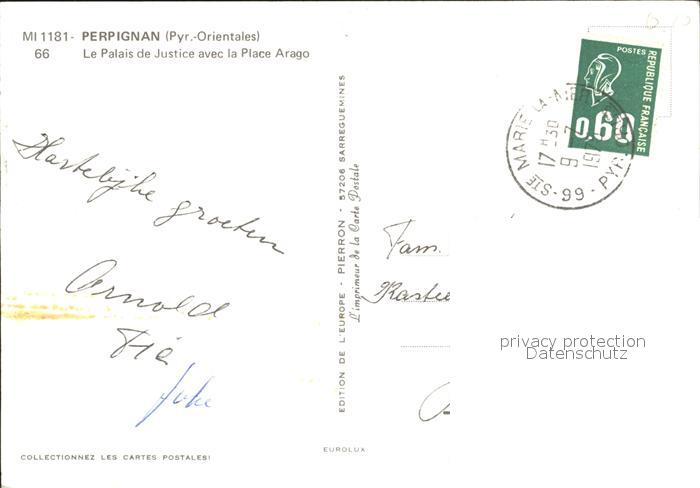 MI 1181- PERPIGNAN (Pyr.-Orientales)
66 Le Palais de Justice avec la Place Arago
POSTES
REPUBLIQUE FRANÇAISE
0,60
STE MARIE-LA-
17 H 30
9 - 7
19
66 - PYR
Hartelijke groeten
Arnold
EDITION DE L'EUROPE - PIERRON - 57206 SARREGUEMINES
L'imprimeur de la Carte Postale
Fam.
Kastee
privacy protection
Datenschutz
EUROLUX
COLLECTIONNEZ LES CARTES POSTALES!